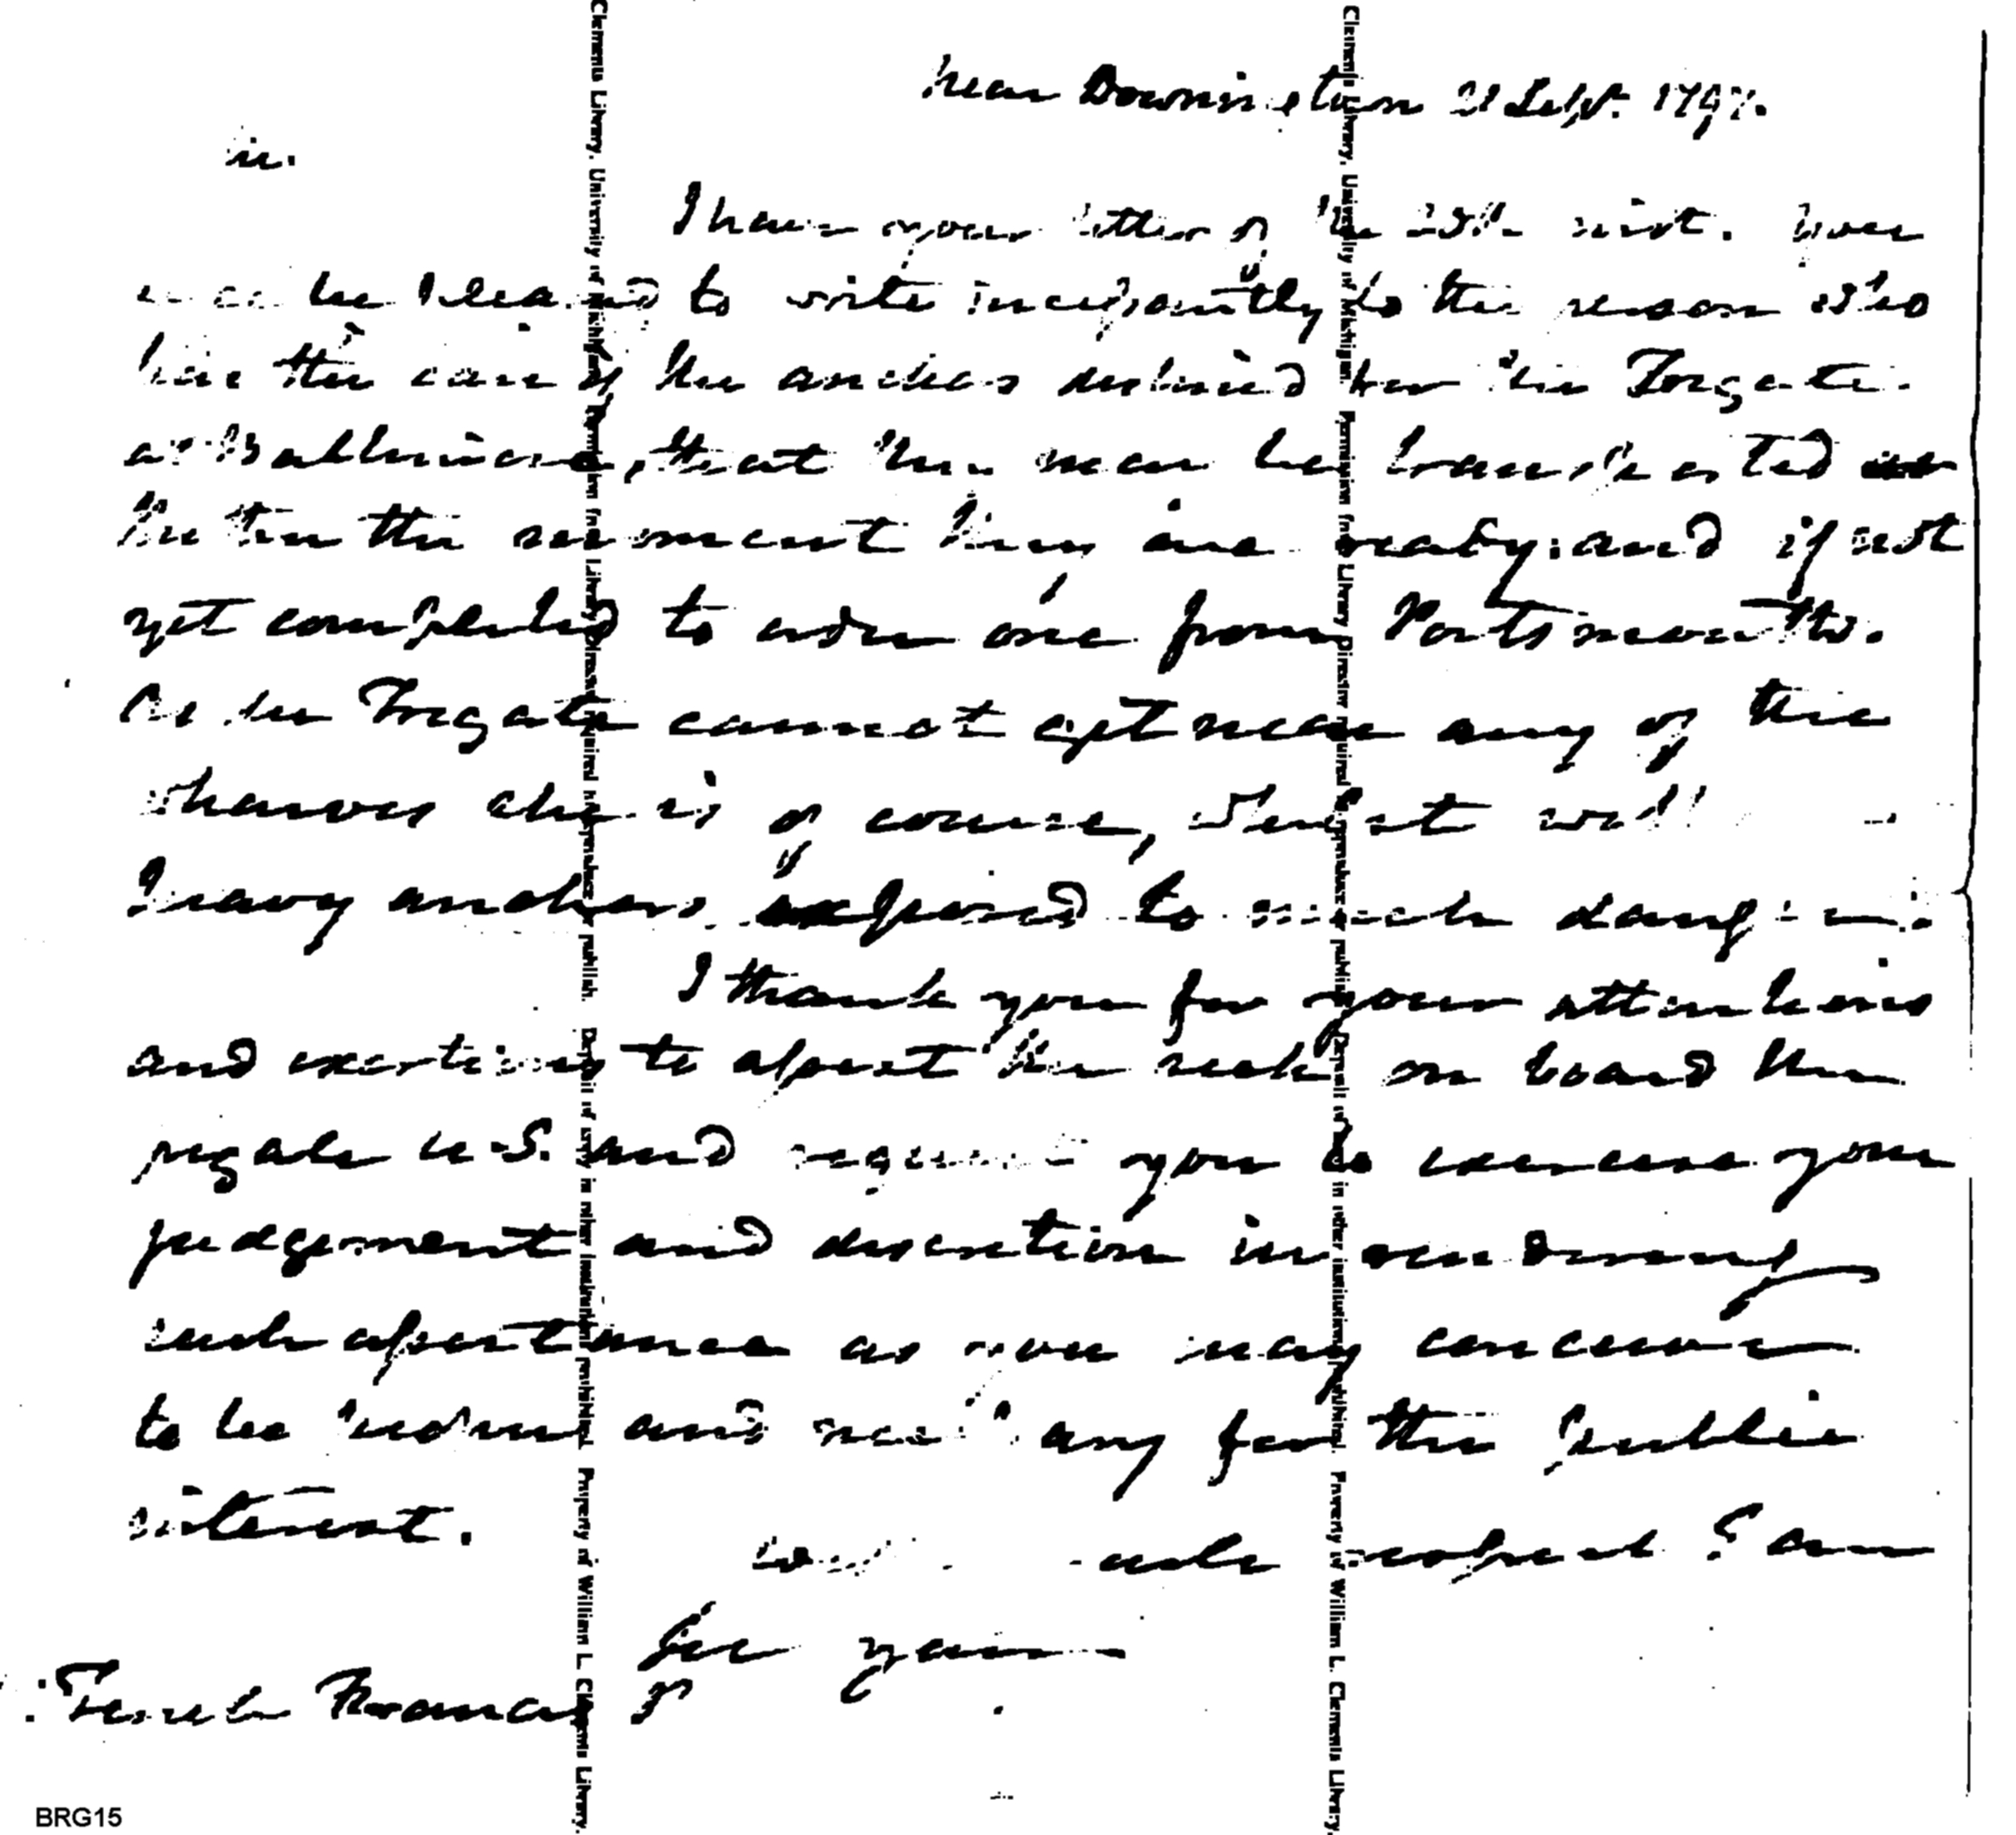 near Downington 21 Sept. 1797.
Sir.
I have your letter of the inst. You
will be pleased to write incessantly to the person who
has the care of the anchors destined for the Frigate
at Baltimore, that they may be transported
hither the moment they are ready; and if not
yet completed to order one from Portsmouth.
As the Frigate cannot get near any of the
wharves she is of course, without
heavy anchors, exposed to much danger.
I thank you for your attentions
and exertions to assist the sick on board the
frigate U.S. and request you to exercise your
judgement and discretion in rendering
such assistance as you may conceive
to be useful and necessary for the public
interest.
With respect I am
for your
Tench Francis
BRG15
Clements Library. University of Michigan. Permission from Library Director required to reproduce or publish. Deposit of copy in other institutions prohibited. Property of William L. Clements Library.
Clements Library. University of Michigan. Permission from Library Director required to reproduce or publish. Deposit of copy in other institutions prohibited. Property of William L. Clements Library.